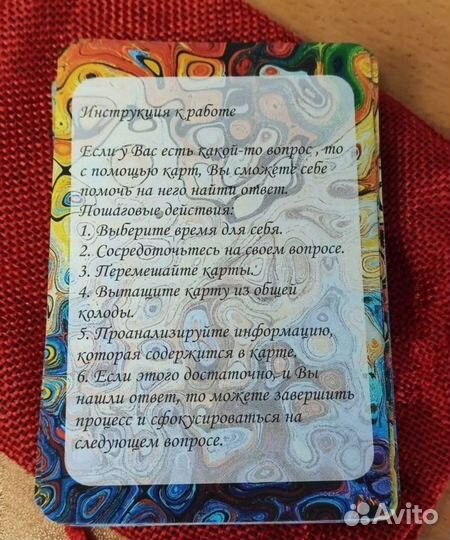 Инструкция к работе
Если у Вас есть какой-то вопрос , то
с помощью карт, Вы сможете себе
помочь на него найти ответ.
Пошаговые действия:
1. Выберите время для себя.
2. Сосредоточьтесь на своем вопросе.
3. Перемешайте карты.
4. Вытащите карту из общей
колоды.
5. Проанализируйте информацию,
которая содержится в карте.
6. Если этого достаточно, и Вы
нашли ответ, то можете завершить
процесс и сфокусироваться на
следующем вопросе.
Avito